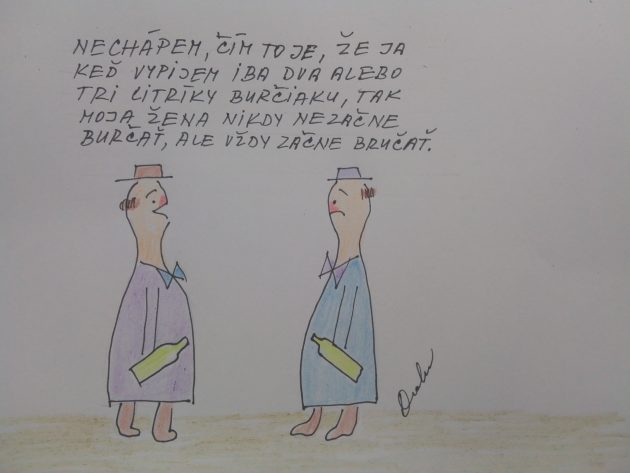 NECHÁPEM, ČÍM TO JE, ŽE JA
KEĎ VYPIJEM IBA DVA ALEBO
TRI LITRÍKY BURČIAKU, TAK
MOJA ŽENA NIKDY NEZAČNE
BURČAŤ, ALE VŽDY ZAČNE BRUČAŤ.